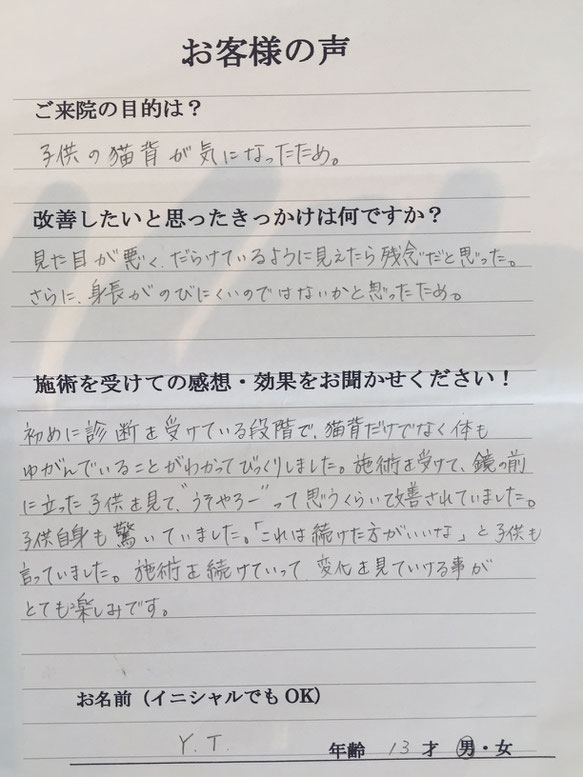 お客様の声
ご来院の目的は?
子供の猫背が気になったため。
改善したいと思ったきっかけは何ですか?
見た目が悪く、だらけているように見えたら残念だと思った。
さらに、身長がのびにくいのではないかと思ったため。
施術を受けての感想・効果をお聞かせください!
初めに診断を受けている段階で、猫背だけでなく体も
ゆがんでいることがわかってびっくりしました。施術を受けて、鏡の前
に立った子供を見て、"うそやろー"って思うくらいて改善されていました。
子供自身も驚いていました。「これは続けた方がいいな」と子供も
言っていました。施術を続けていって変化を見ていける事が
とても楽しみです。
お名前(イニシャルでもOK)
Y.T. 年齢 13 才 男・女